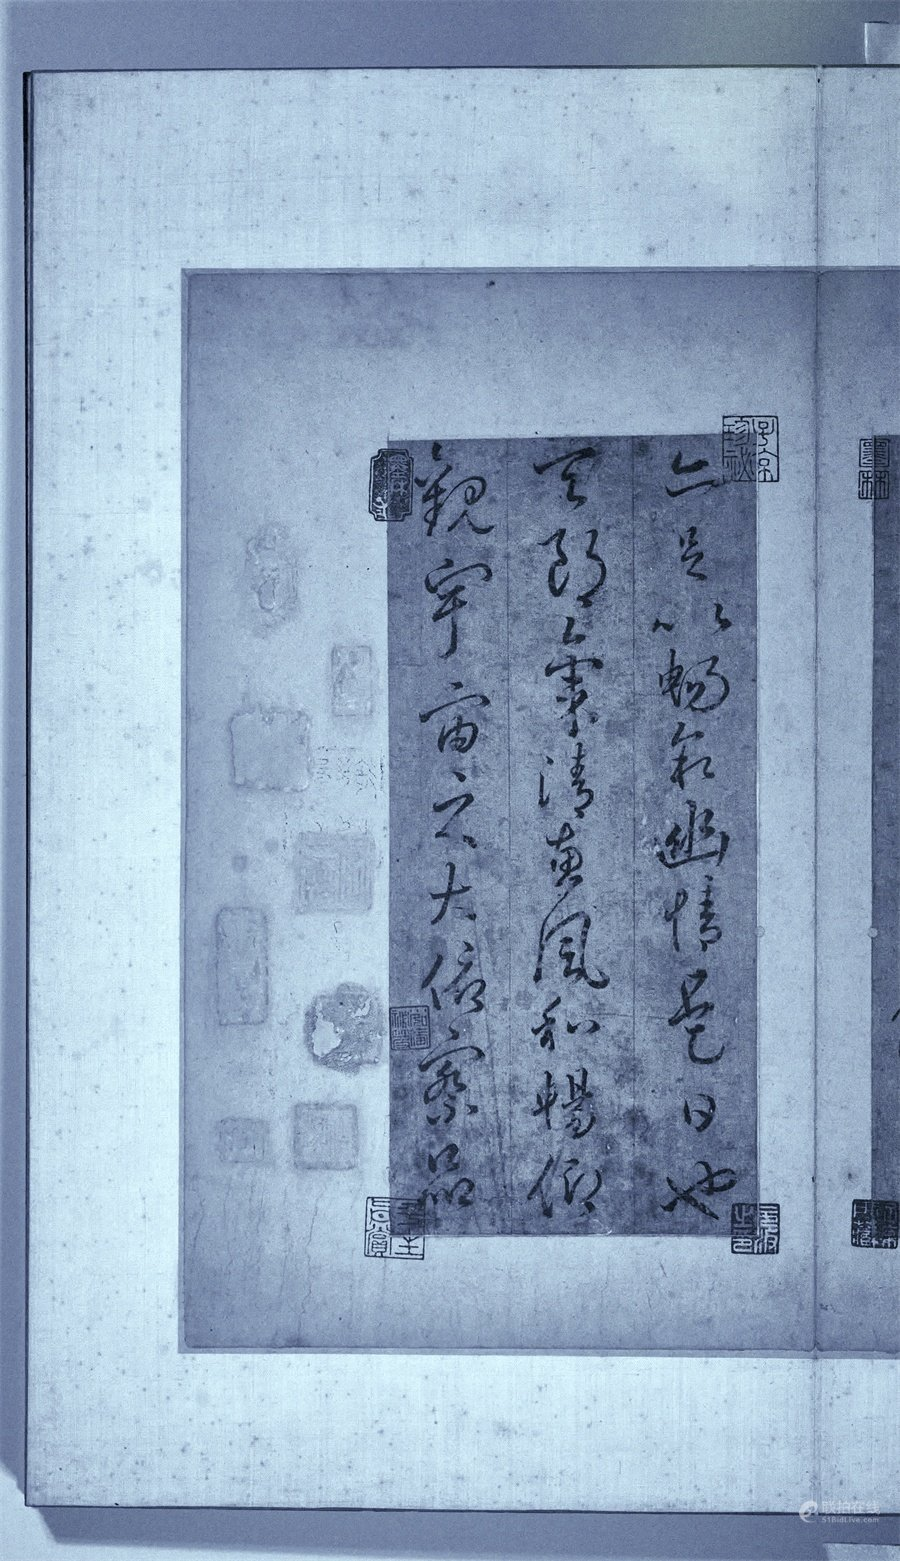 亦足以暢叙幽情是日也
天朗氣清惠風和暢仰
觀宇宙之大俯察品
联拍在线
51BidLive.com